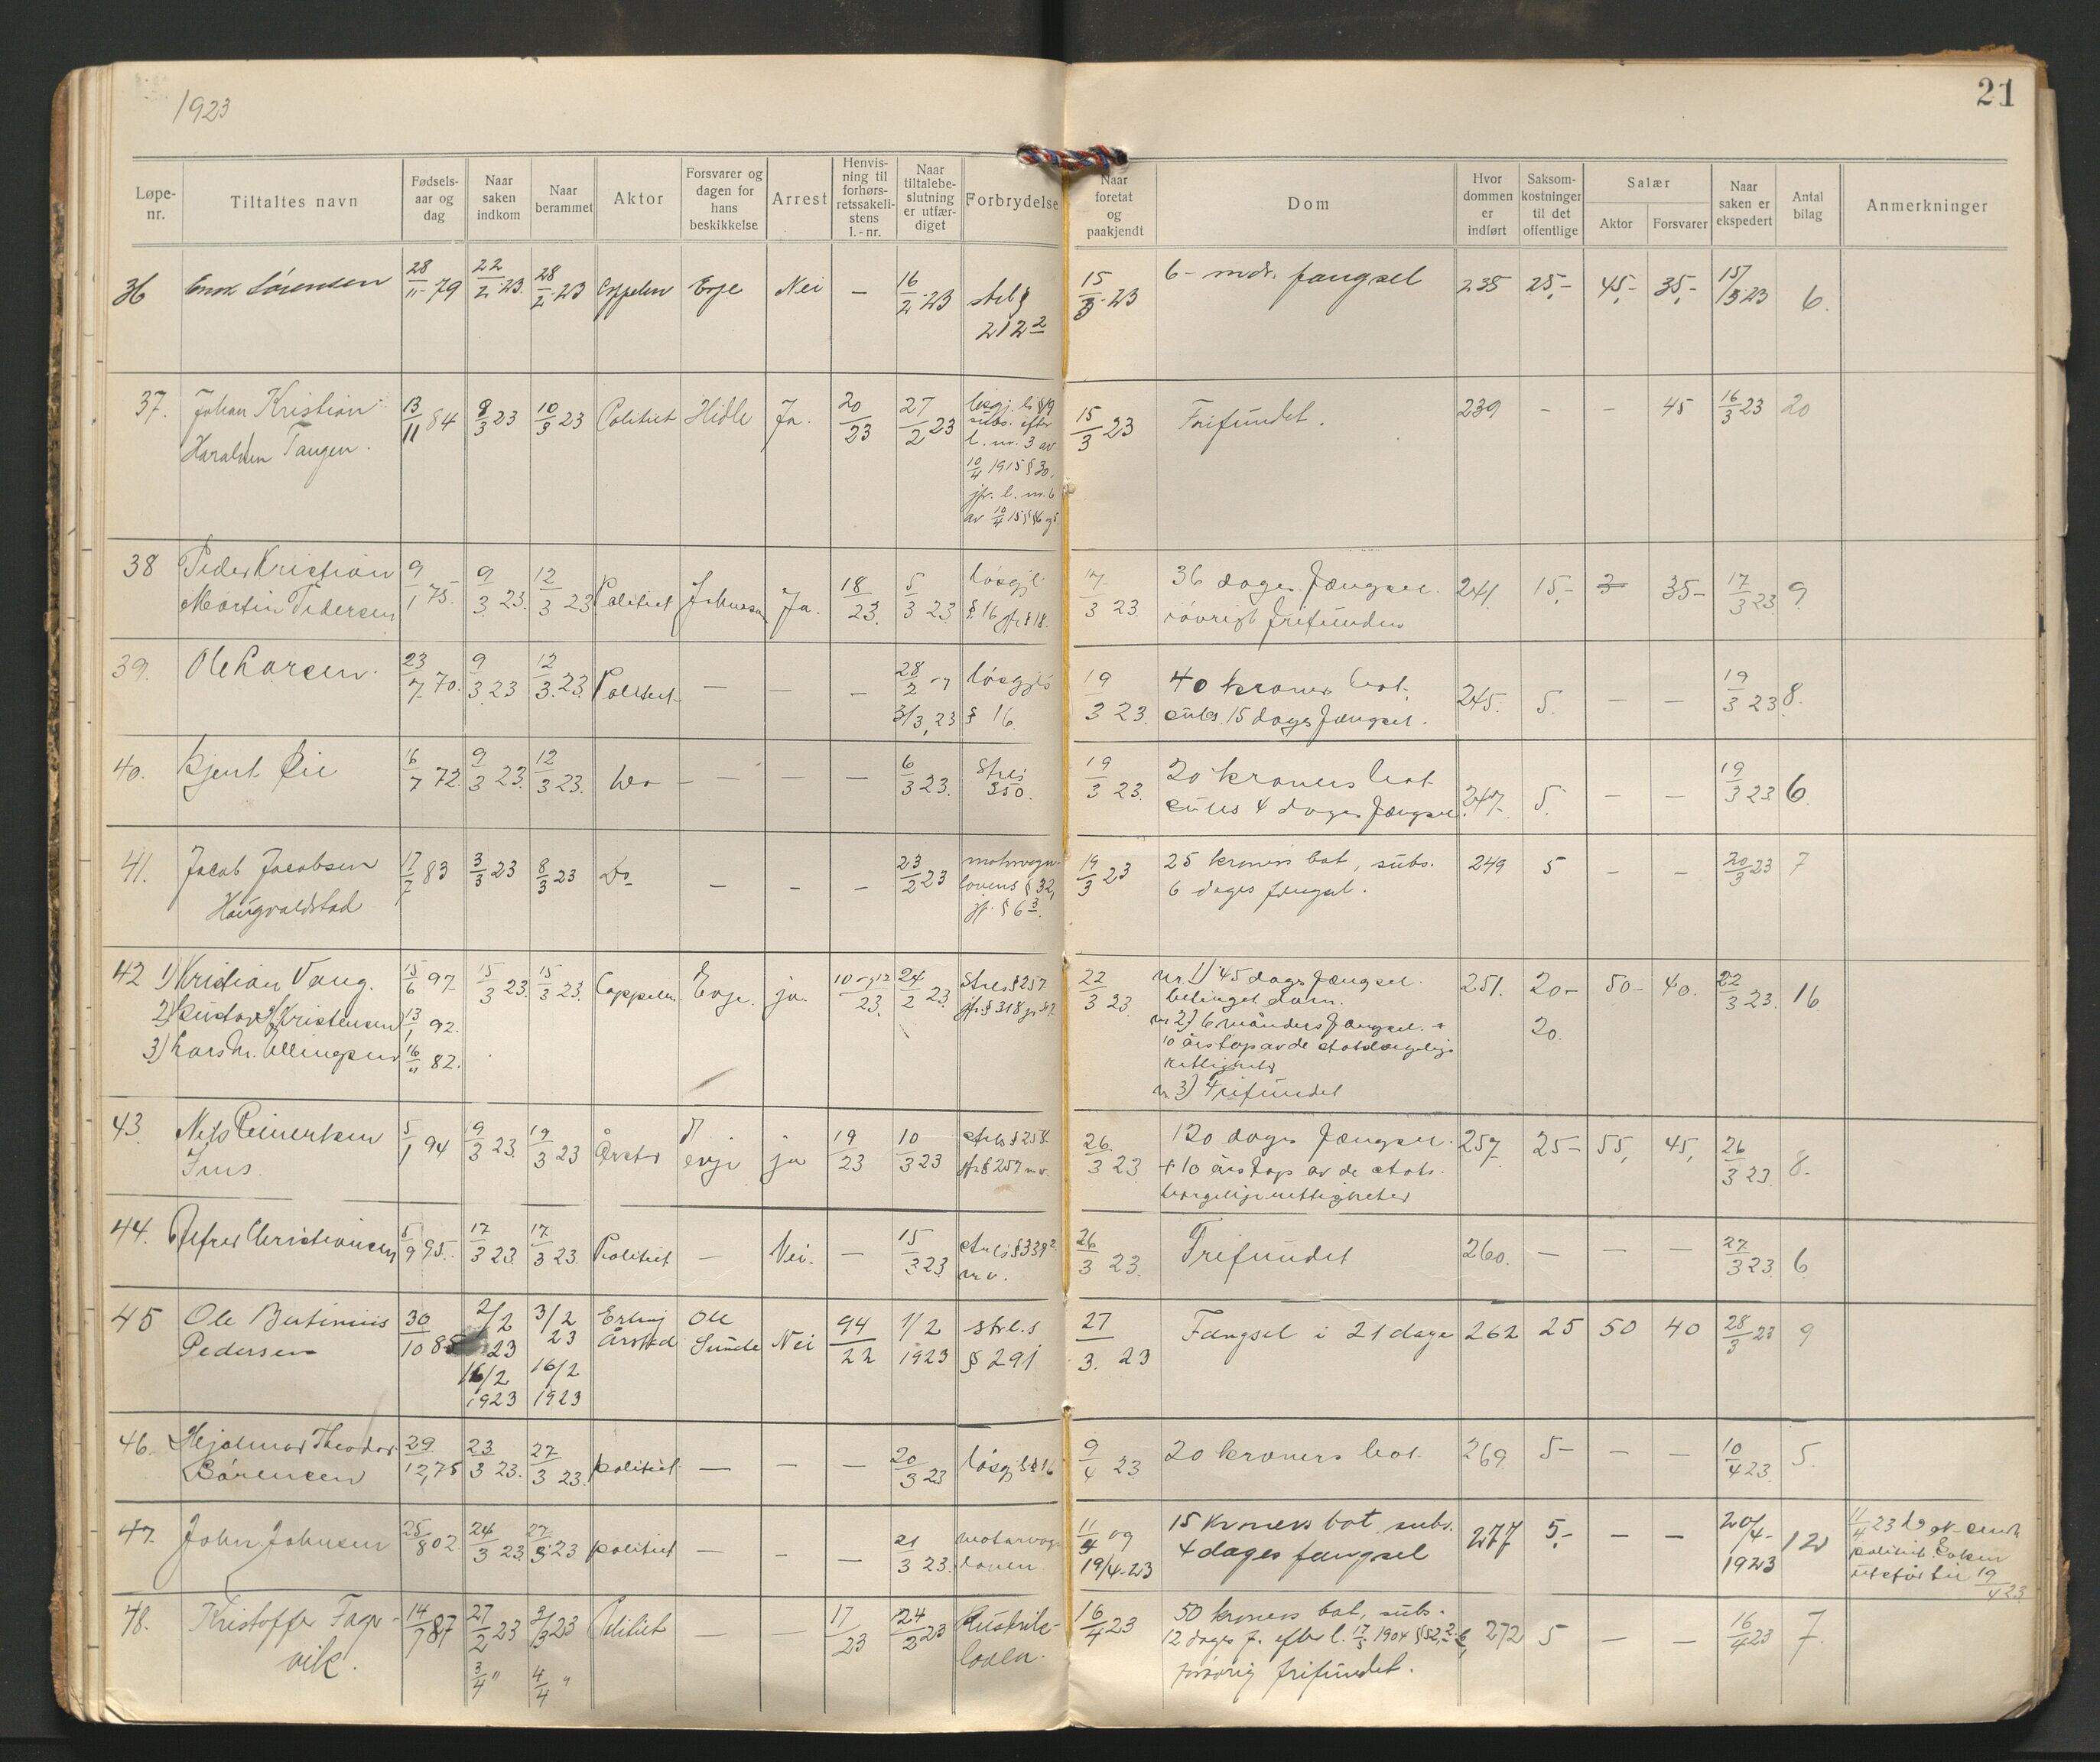 1923
21
Løpe-nr. Tiltaltes navn Fødsels-aar og dag Naar saken indkom Naar berammet Aktor Forsvarer og dagen for hans beskikkelse Arrest Henvis-ning til forhørs-retssakeli-stens l.-nr. Naar tiltalebe-slutning er utfær-diget Forbrydelse Naar foretat og paakjendt Dom Hvor dommen er indført Saksom-kostninger til det offentlige Salær Aktor Forsvarer Naar saken er ekspedert Antal bilag Anmerkninger
36 Sørensen 28/11-79 22/2-23. 28/2-23 Evje Nei — 16/2-23 strl §
212 2
15/3-23 6 - mdr. fængsel 238 25,- 45,- 35,- 15/3-23 6.
37. Johan Kristian
Haralden Tangen.
13/11 84 8/3 23 10/3 23 Politiet Hidle Ja. 20/23 27/2 23 løsgj. l. § 19
subs. efter
l. nr. 3 av
10/4 1915 § 30,
jfr. l. nr. 6
av 10/4 15
15/3 23 Frifundet. 239 - - 45 16/3 23 20
38 Peder Kristian
Martin Pedersen
9/1 75. 9/3 23. 12/3 23 Politiet Johnsen Ja. 18/23. 5/3 23 løsgjl.
§ 16 jfr § 18.
17/3 23. 36 dages fængsel.
iøvrigt frifunden
241. 15,- 35- 17/3 23 9.
39. Ole Larsen. 23/7 70. 9/3 23 12/3. 23. Politiet — — — 28/2 og
3/3, 23
løsgjl
§ 16.
19/3 23. 40 kroners bot.
subs. 15 dages fængsel.
245. 5. — — 19/3 23 8.
40. Bjent Øie 16/7 72. 9/3 23. 12/3 23. Do — — — — 6/3 23. Strl §
350.
19/3 23. 20 kroners bot
subs 4 dages fængsel.
247. 5. — — 19/3 23 6.
41. Jacob Jacobsen
Haugvaldstad
17/7 83 3/3 23 8/3 23 Do — - - 23/2 23 motorvogn-
lovens § 32,
jfr. § 6 3.
19/3 23 25 kroners bot, subs.
6 dages fængsel.
249 5 - - 20/3 23 7
42 1) Kristian Vang. 15/6 97. 15/3 23. 15/3 23. Cappelen. Evje. ja. 10 og 12/23. 24/2 23. Strl § 257
2) Gustav Kristensen 13/1 92.
3) Lars M. Ellingsen 16/11 82.
22/3 23. Nr. 1) 45 dages fængsel.
betinget dom.
nr 2) 6 måneders fængsel. +
10 års tap av de statsborgerlige
rettigheter
nr 3) Frifundet
251. 20- 50- 40. 22/3 23. 16
20.
43. Nils Reinertsen
5/1 94 9/3 23. 19/3 23 Årstad evje ja 19/23 10/3 23 strl § 258
jfr § 257 m.v.
26/3 23. 120 dages fængsel.
+ 10 års tap av de stats-
borgerlige rettigheter
257. 25- 55, 45, 26/3 23. 8.
44. Alfred Christiansen 5/9 95. 17/3 23. 17/3 23. Politiet — Nei. — 15/3 23. strl § 339 2
m.v.
26/3 23. Frifundet 260. — — — 27/3 23 6
45 Ole Bertinius
Pedersen
30/10 85 2/2
23
16/2
1923
3/2
23
16/2
1923
Erling
Årstad
Ole
Sunde
Nei 94/22 1/2
1923
strl.s
§ 291
27/3. 23 Fængsel i 21 dage 262 25 50 40 28/3 23 9
46. Hjalmar Theodor
Sørensen
29/12, 75 23/3 23. 27/3 23. politiet — — — 20/3 23 løsgj l § 16
9/4 23 20 kroners bot. 269. 5- — — 10/4 23. 5.
47. John Johnsen 25/8 02. 24/3 23. 27/3 23 politiet — - — 21/3 23. motorvogn
loven.
11/4 og
19/4-23
15 kroners bot subs.
4 dages fængsel
277 5,- — — 20/4-
1923
12
11/4 23
politiet. Saken
19/4 23
48. Kristoffer Fage-
vik.
14/7 87 27/2 23 2/3 23 Politiet — — 17/23 24/2 23 Rusdriks-
loven.
3/4 " 4/4 "
16/4 23 50 kroners bot, subs.
12 dages f. efter l. 17/5 1904
forøvrig frifundet.
272 5 — — 16/4 23 7.